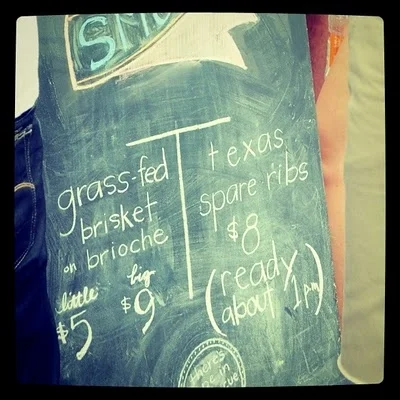 SM
grass-fed
brisket
on brioche
little big
$5 $9
texas
spare ribs
$8
(ready
about 1pm)
there's
in